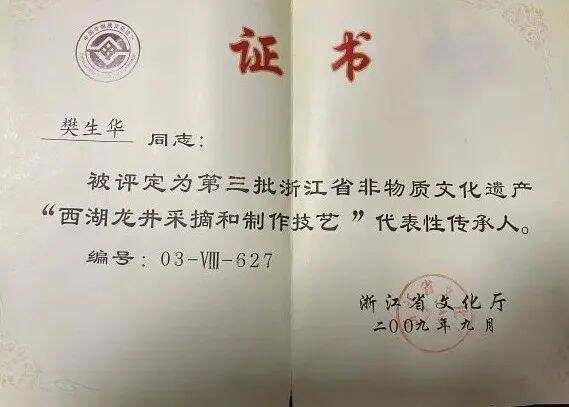 证书
樊生华 同志：
被评定为第三批浙江省非物质文化遗产
“西湖龙井采摘和制作技艺”代表性传承人。
编号：03-Ⅷ-627
浙江省文化厅
二〇〇九年九月